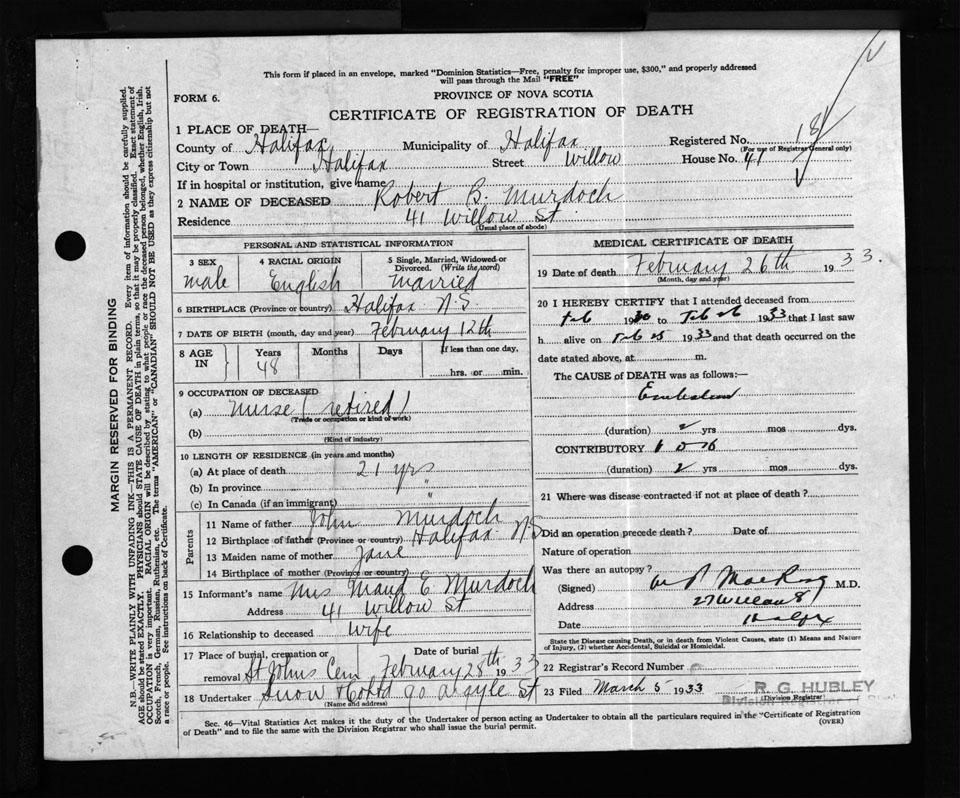 This form if placed in an envelope, marked "Dominion Statistics—Free, penalty for improper use, $300," and properly addressed
will pass through the Mail "FREE"
FORM 6.
PROVINCE OF NOVA SCOTIA
CERTIFICATE OF REGISTRATION OF DEATH
1 PLACE OF DEATH—
County of Halifax Municipality of Halifax Registered No.
(For use of Registrar General only)
City or Town Halifax Street Willow House No. 41
If in hospital or institution, give name
2 NAME OF DECEASED Robert B. Murdoch
Residence 41 Willow St
(Usual place of abode)
PERSONAL AND STATISTICAL INFORMATION
3 SEX 4 RACIAL ORIGIN 5 Single, Married, Widowed or Divorced. (Write the word)
male English Married
6 BIRTHPLACE (Province or country) Halifax N.S.
7 DATE OF BIRTH (month, day and year) February 12th
8 AGE IN Years Months Days If less than one day,
48 hrs. or min.
9 OCCUPATION OF DECEASED
(a) Nurse (retired)
(Trade or occupation or kind of work)
(b)
(Kind of industry)
10 LENGTH OF RESIDENCE (in years and months)
(a) At place of death 21 yrs
(b) In province "
(c) In Canada (if an immigrant) "
Parents
11 Name of father John Murdoch
12 Birthplace of father (Province or country) Halifax N.S
13 Maiden name of mother Jane
14 Birthplace of mother (Province or country)
15 Informant's name Mrs Maud E Murdoch
Address 41 Willow St
16 Relationship to deceased Wife
17 Place of burial, cremation or removal Date of burial
St Johns Cem February 28th 1933
18 Undertaker Snow 90 Argyle St
(Name and address)
MEDICAL CERTIFICATE OF DEATH
19 Date of death February 26th 1933.
(Month, day and year)
20 I HEREBY CERTIFY that I attended deceased from
Feb 1930 to Feb 26 1933 that I last saw
h alive on Feb 25 1933 and that death occurred on the
date stated above, at m.
The CAUSE of DEATH was as follows:—
(duration) 2 yrs mos dys.
CONTRIBUTORY
(duration) 2 yrs mos dys.
21 Where was disease contracted if not at place of death?
Did an operation precede death? Date of
Nature of operation
Was there an autopsy?
(Signed) M.D.
Address
Date
State the Disease causing Death, or in death from Violent Causes, state (1) Means and Nature
of Injury, (2) whether Accidental, Suicidal or Homicidal.
22 Registrar's Record Number
23 Filed March 5 1933 R. G. HUBLEY
Division Registrar
(Division Registrar)
Sec. 46—Vital Statistics Act makes it the duty of the Undertaker or person acting as Undertaker to obtain all the particulars required in the "Certificate of Registration
of Death" and to file the same with the Division Registrar who shall issue the burial permit.
(OVER)
MARGIN RESERVED FOR BINDING
N.B.—WRITE PLAINLY WITH UNFADING INK—THIS IS A PERMANENT RECORD. Every item of information should be carefully supplied.
AGE should be stated EXACTLY. PHYSICIANS should STATE CAUSE OF DEATH in plain terms, so that it may be properly classified. Exact statement of
OCCUPATION is very important. RACIAL ORIGIN will be described by stating to what people or race the deceased person belonged, whether English, Irish,
Scotch, French, German, Russian, Ruthenian, etc. The terms "AMERICAN" or "CANADIAN" SHOULD NOT BE USED as they express citizenship but not
a race or people. See instructions on back of Certificate.